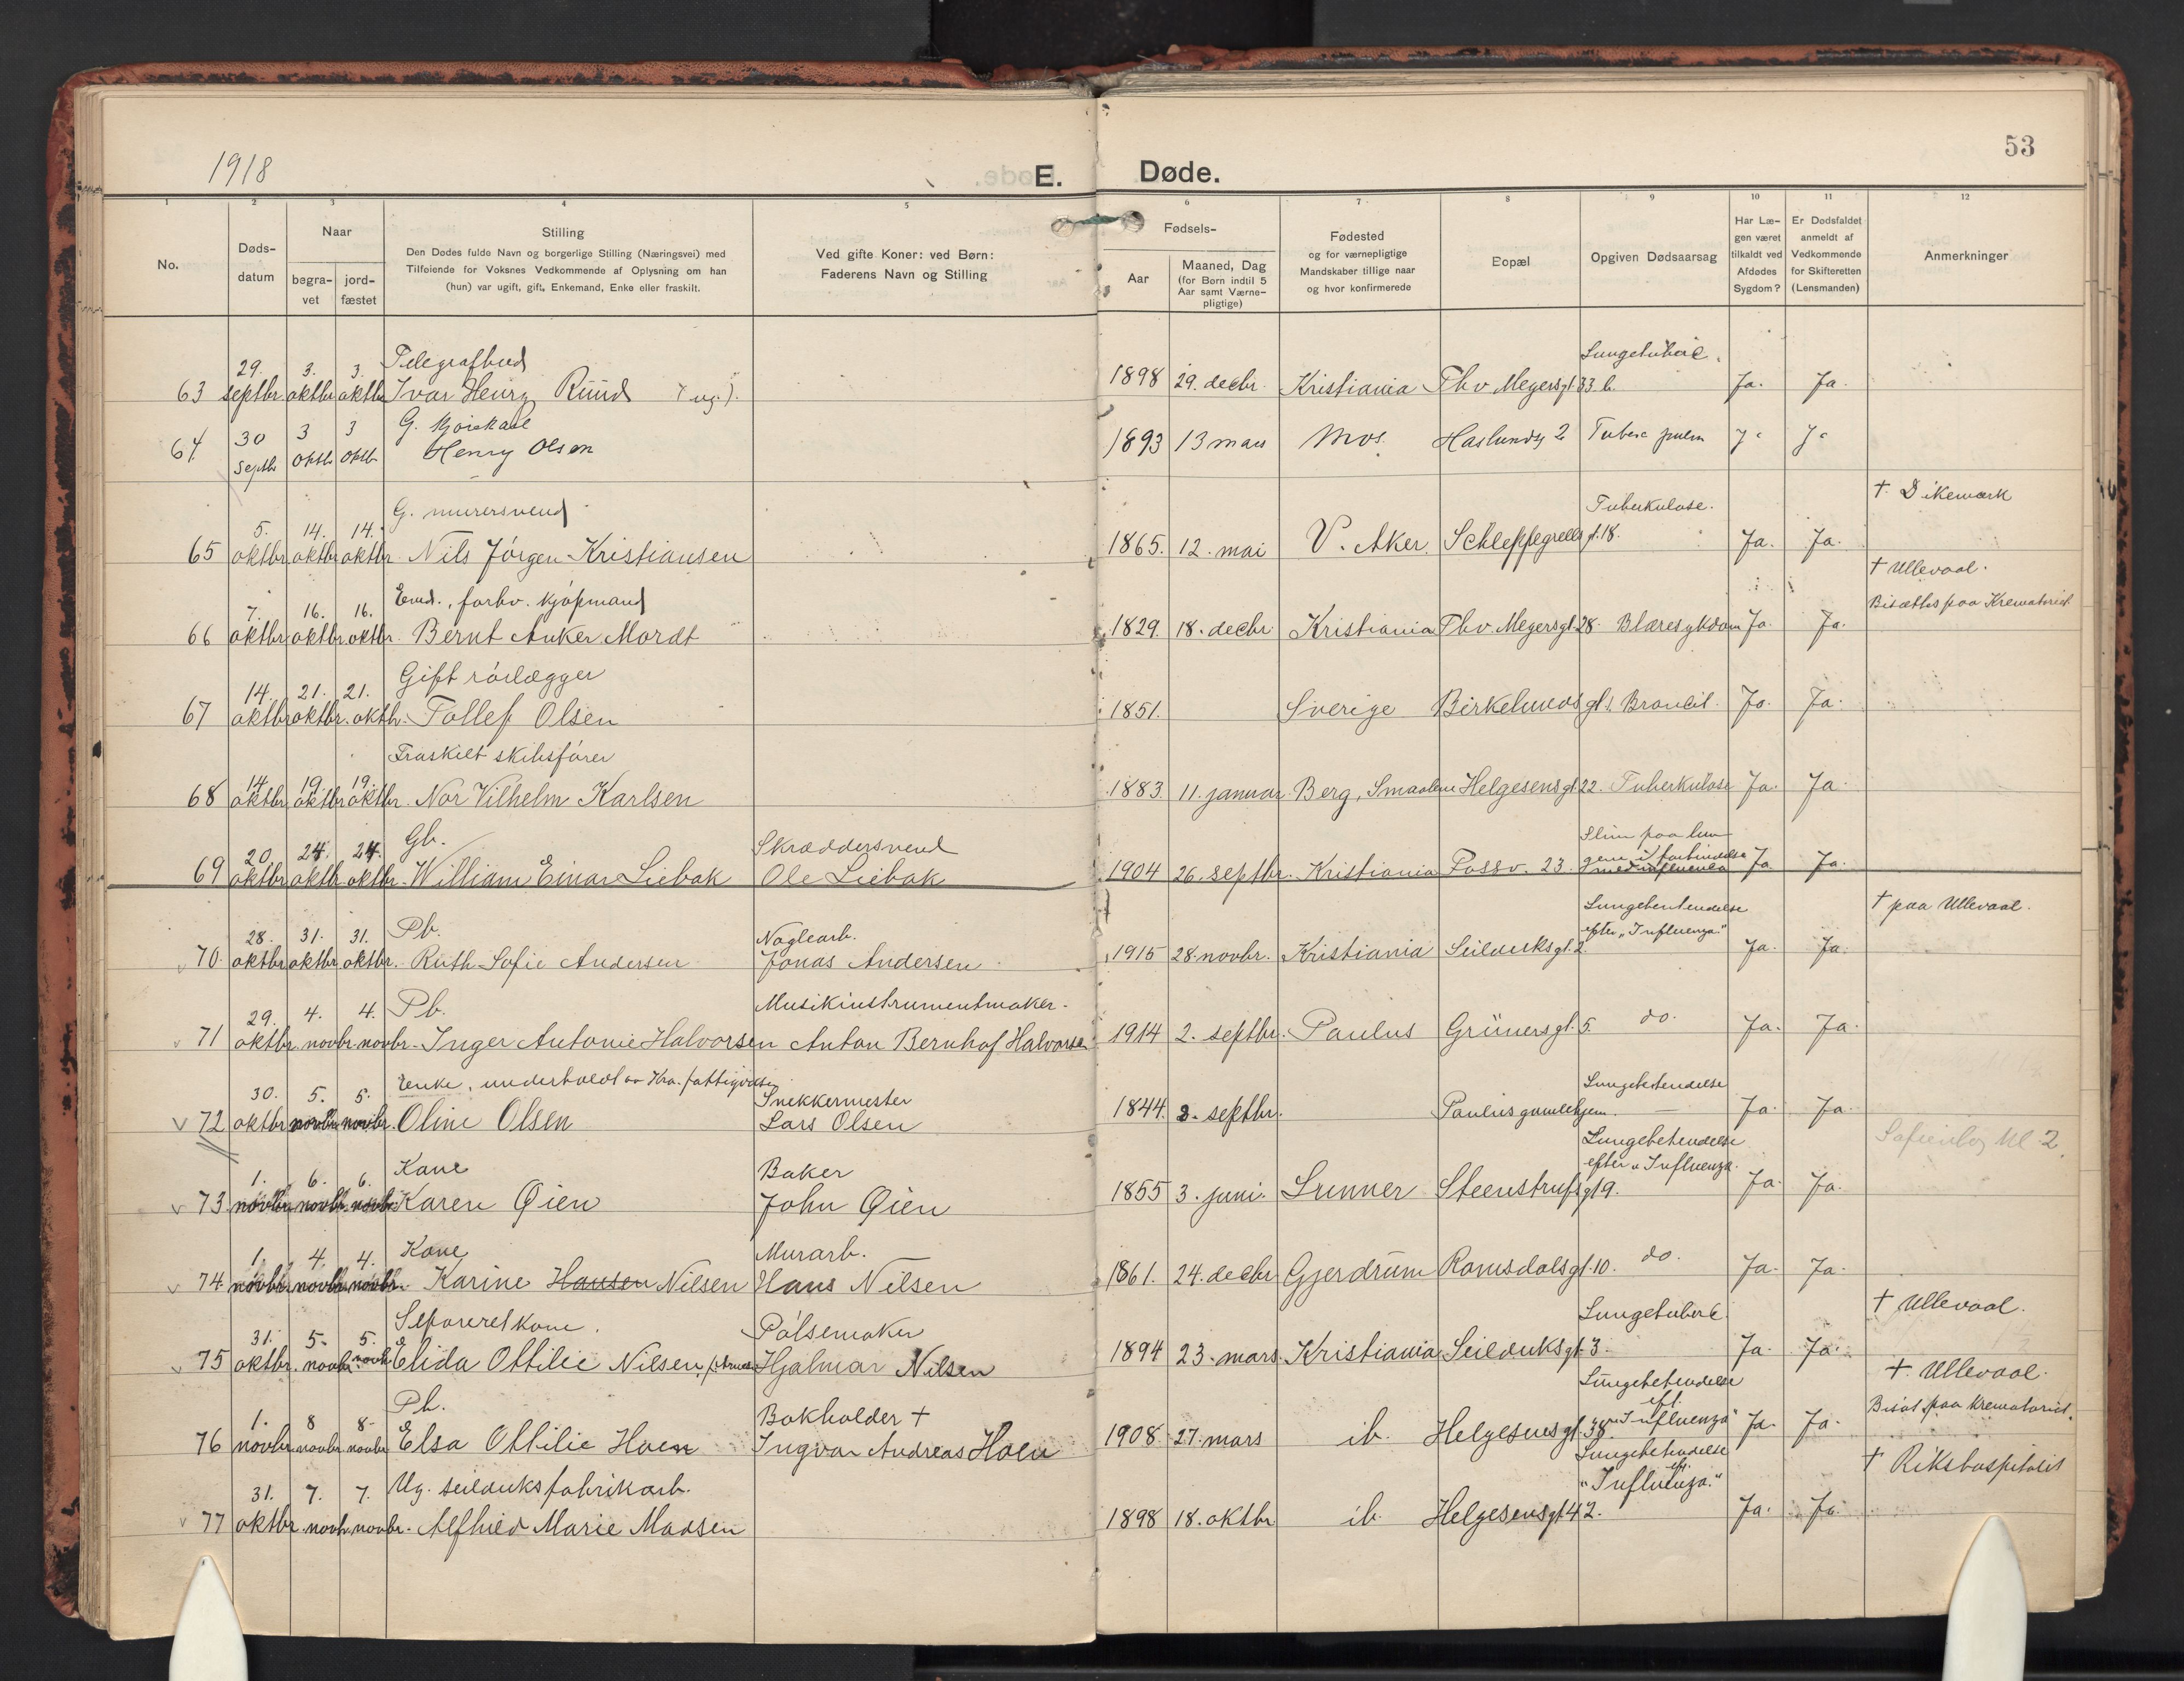 1918
E. Døde.
53
1 2 3 4 5 6 7 8 9 10 11 12
No.
Døds-
datum
Naar
begra-
vet
jord-
fæstet
Stilling
Den Dødes fulde Navn og borgerlige Stilling (Næringsvei) med
Tilføiende for Voksnes Vedkommende af Oplysning om han
(hun) var ugift, gift, Enkemand, Enke eller fraskilt.
Ved gifte Koner: ved Børn:
Faderens Navn og Stilling
Fødsels-
Aar
Maaned, Dag
(for Børn indtil 5
Aar samt Værne-
pligtige)
Fødested
og for værnepligtige
Mandskaber tillige naar
og hvor konfirmerede
Bopæl
Opgiven Dødsaarsag
Har Læ-
gen været
tilkaldt ved
Afdødes
Sygdom?
Er Dødsfaldet
anmeldt af
Vedkommende
for Skifteretten
(Lensmanden)
Anmerkninger
29. 3. 3. Telegrafbud Lungetuberc.
63 septbr. oktbr. oktbr. Ivar Henry Ruud (ug.). 1898 29. decbr. Kristiania Thv. Meyersgt. 33 b. Ja. Ja.
30 3 3 G. Kjørekarl
64. Septbr Oktbr Oktbr Henry Olsen 1893 13 mars Mos. Haslundsg 2 Tuberc pulm Ja Ja
5. 14. 14. G. murersvend Tuberkulose. † Dikemark
65 oktbr. oktbr. oktbr. Nils Jörgen Kristiansen 1865. 12. mai V. Aker Schleppegrells gt. 18. Ja. Ja.
7. 16. 16. Enkem., forhv. kjøpmand † Ullevaal. Bisattes paa Krematoriet
66 oktbr. oktbr. oktbr. Bernt Anker Mordt 1829. 18. decbr Kristiania Thv. Meyersgt. 28. Blæresykdom Ja. Ja.
14. 21. 21. Gift rörlægger
67 oktbr. oktbr. oktbr. Tollef Olsen 1851. Sverige Birkelunds gt. 1. Broncit. Ja. Ja.
14. 19. 19. Fraskilt skibsförer
68 oktbr. oktbr. oktbr. Nor Vilhelm Karlsen 1883. 11. januar Berg, Smaalene Helgesens gt. 22. Tuberkulose Ja. Ja.
20. 24. 24. Gb. Skræddersvend Slim paa lun-
gene i forbindelse
69 oktbr. oktbr. oktbr. William Einar Liebak Ole Liebak 1904 26. septbr. Kristiania Fossv. 23. med influenza Ja. Ja.
28. 31. 31. Pb. Naglearb. Lungebetendelse † paa Ullevaal.
efter "Influenza"
70. oktbr. oktbr. oktbr. Ruth Sofie Andersen Jonas Andersen 1915 28. novbr. Kristiania Seilduksgt. 2 Ja. Ja.
29. 4. 4. Pb. Musikinstrumentmaker.
71 oktbr. novbr. novbr. Inger Antonie Halvorsen Anton Bernhof Halvorsen 1914 2. septbr. Paulus Grünersgt. 5. do. Ja. Ja.
30. 5. 5. Enke, underholdt av Kra. fattigvæsen Snekkermester Lungebetendelse
72 oktbr. novbr. novbr. Oline Olsen Lars Olsen 1844. 2. septbr. Paulus gamlehjem. Ja. Ja.
1. 6. 6. Kone Baker Lungebetendelse
efter "Influenza. Sofienbg Ul 2.
73 novbr. novbr. novbr. Karen Øien John Øien 1855 3. juni. Lunner Steenstrupsgt 9. Ja. Ja.
1. 4. 4. Kone Murarb.
74. novbr. novbr. novbr. Karine Hansen Nilsen Hans Nilsen 1861. 24. decbr Gjerdrum Romsdalsgt. 10. do. Ja. Ja.
31. 5. 5. Separeret kone. Pölsemaker Lungetuberc. † Ullevaal.
75 oktbr. novbr. novbr Elida Ottilie Nilsen, Hjalmar Nilsen 1894 23. mars Kristiania Seilduksgt 3. Ja. Ja.
1. 8 8. Pb. Bokholder † Lungebetendelse
eft. "Influenza" † Ullevaal. Bisat paa krematoriet.
76 novbr. novbr. novbr Elsa Ottilie Hoen Ingvar Andreas Hoen 1908. 27. mars ib. Helgesens gt. 38. Ja. Ja.
31. 7. 7. Ug. seilduksfabrikarb. Lungebetendelse
eft. "Influenza." † Rikshospitalet
77 oktbr. novbr. novbr. Alfhild Marie Madsen 1898 18. oktbr ib. Helgesensgt 42. Ja. Ja.